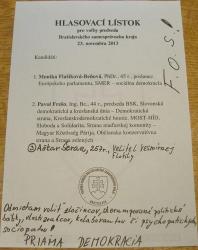 HLASOVACÍ LÍSTOK
pre voľby predsedu
Bratislavského samosprávneho kraja
23. novembra 2013
Kandidáti:
1. Monika Flašíková-Beňová, PhDr., 45 r., poslanec
Európskeho parlamentu, SMER – sociálna demokracia
2. Pavol Frešo, Ing. Bc., 44 r., predseda BSK, Slovenská
demokratická a kresťanská únia – Demokratická
strana, Kresťanskodemokratické hnutie, MOST-HÍD,
Sloboda a Solidarita, Strana maďarskej komunity –
Magyar Közösség Pártja, Občianska konzervatívna
strana a Strana zelených
③ Aštar Šeran, 257r., Veliteľ Vesmírnej
Flotily
F.O.S!
Odmietam voliť zločincov, skorumpované politické
psychopatických
sociopatov!
PRIAMA DEMOKRACIA